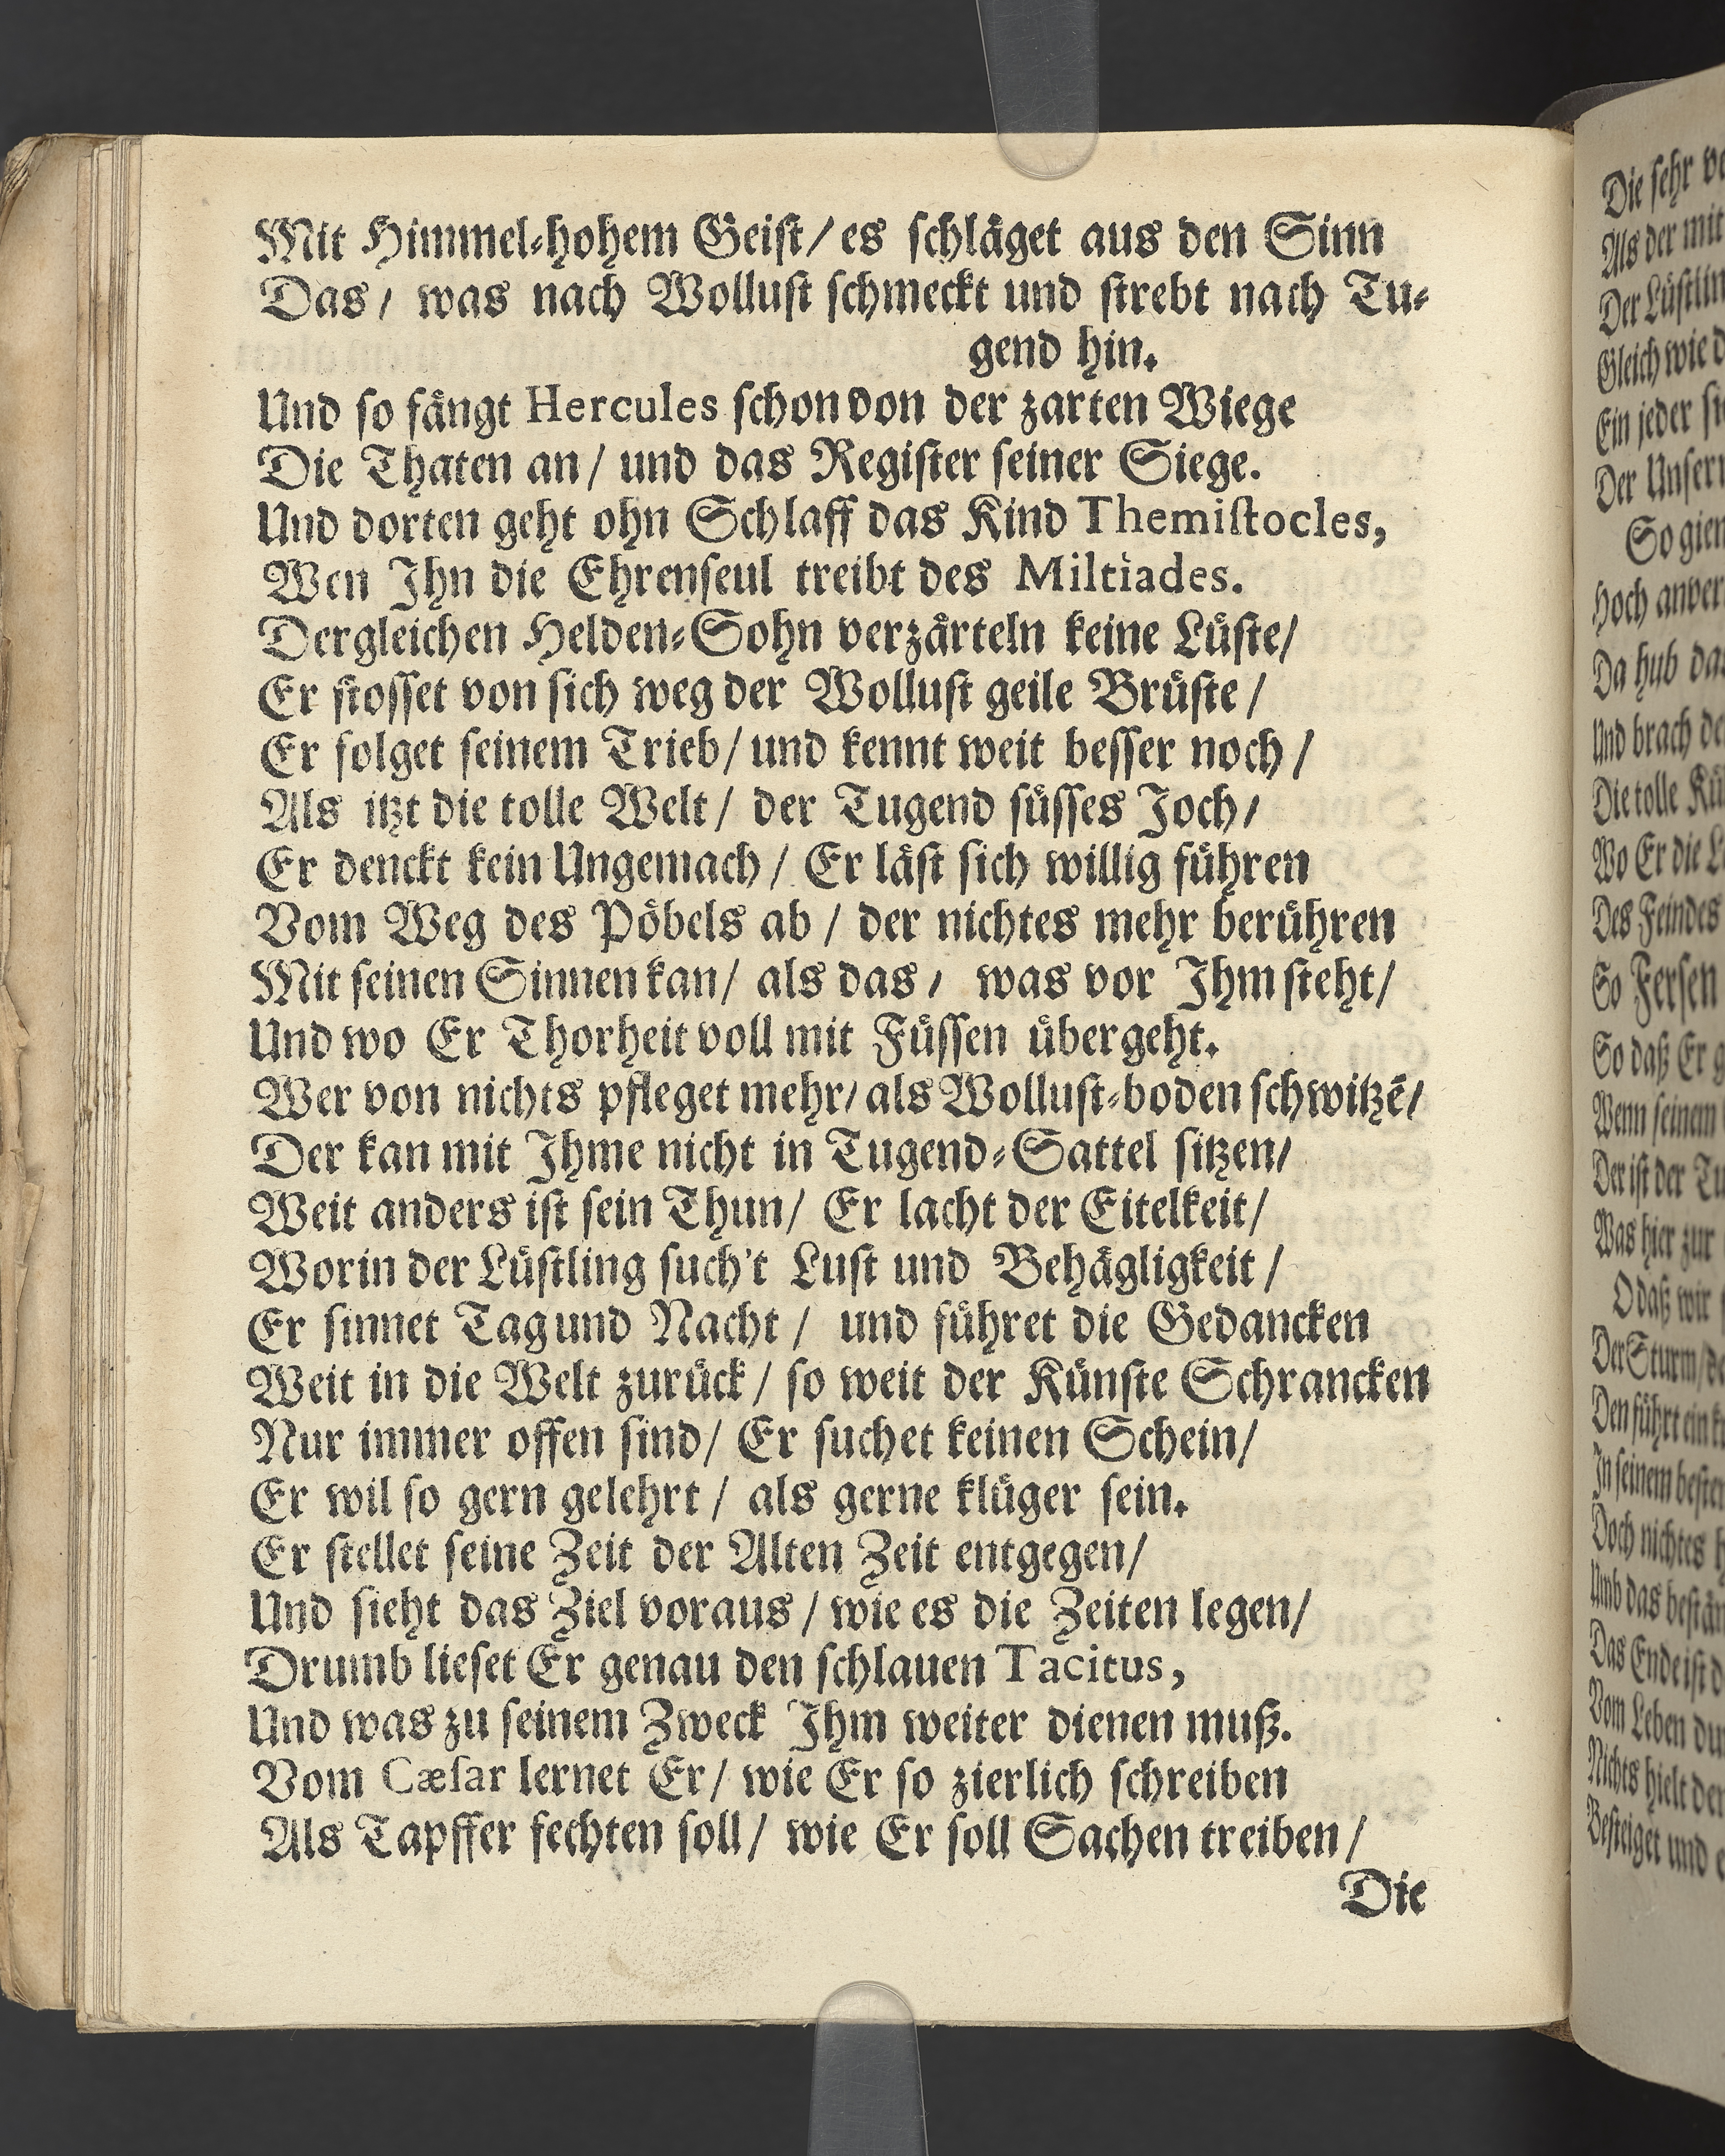 Mit Himmel-hohem Geiſt/ es ſchläget aus den Sinn
Das/ was nach Wolluſt ſchmeckt und ſtrebt nach Tu-
gend hin.
Und ſo fängt Hercules ſchon von der zarten Wiege
Die Thaten an/ und das Regiſter ſeiner Siege.
Und dorten geht ohn Schlaff das Kind Themiſtocles,
Wen Ihn die Ehrenſeul treibt des Miltiades.
Dergleichen Helden-Sohn verzärteln keine Lüſte/
Er ſtoſſet von ſich weg der Wolluſt geile Brüſte/
Er folget ſeinem Trieb/ und kennt weit beſſer noch/
Als itzt die tolle Welt/ der Tugend ſüſſes Joch/
Er denckt kein Ungemach/ Er läſt ſich willig führen
Vom Weg des Pöbels ab/ der nichtes mehr berühren
Mit ſeinen Sinnen kan/ als das/ was vor Ihm ſteht/
Und wo Er Thorheit voll mit Füſſen übergeht.
Wer von nichts pfleget mehr/ als Wolluſt-boden ſchwitzē/
Der kan mit Ihme nicht in Tugend-Sattel ſitzen/
Weit anders iſt ſein Thun/ Er lacht der Eitelkeit/
Worin der Lüſtling ſuch't Luſt und Behägligkeit/
Er ſinnet Tag und Nacht/ und führet die Gedancken
Weit in die Welt zurück/ ſo weit der Künſte Schrancken
Nur immer offen ſind/ Er ſuchet keinen Schein/
Er wil ſo gern gelehrt/ als gerne klüger ſein.
Er ſtellet ſeine Zeit der Alten Zeit entgegen/
Und ſieht das Ziel voraus/ wie es die Zeiten legen/
Drumb lieſet Er genau den ſchlauen Tacitus,
Und was zu ſeinem Zweck Ihm weiter dienen muß.
Vom Cæſar lernet Er/ wie Er ſo zierlich ſchreiben
Als Tapffer fechten ſoll/ wie Er ſoll Sachen treiben/
Die
Die ſehr
Als der mit
Der
Gleich wie
Ein jeder
Der
So
Hoch
Da hub
Und brach
Die tolle
Wo Er die
Des Feindes
So Ferſen
So daß Er
Wenn ſeinem
Der iſt der
Was hier zur
O daß wir
Der Sturm/
Den führt ein
In ſeinem
Doch nichtes
Umb das
Das Ende iſt
Vom Leben
Nichts hielt
Beſteiget und